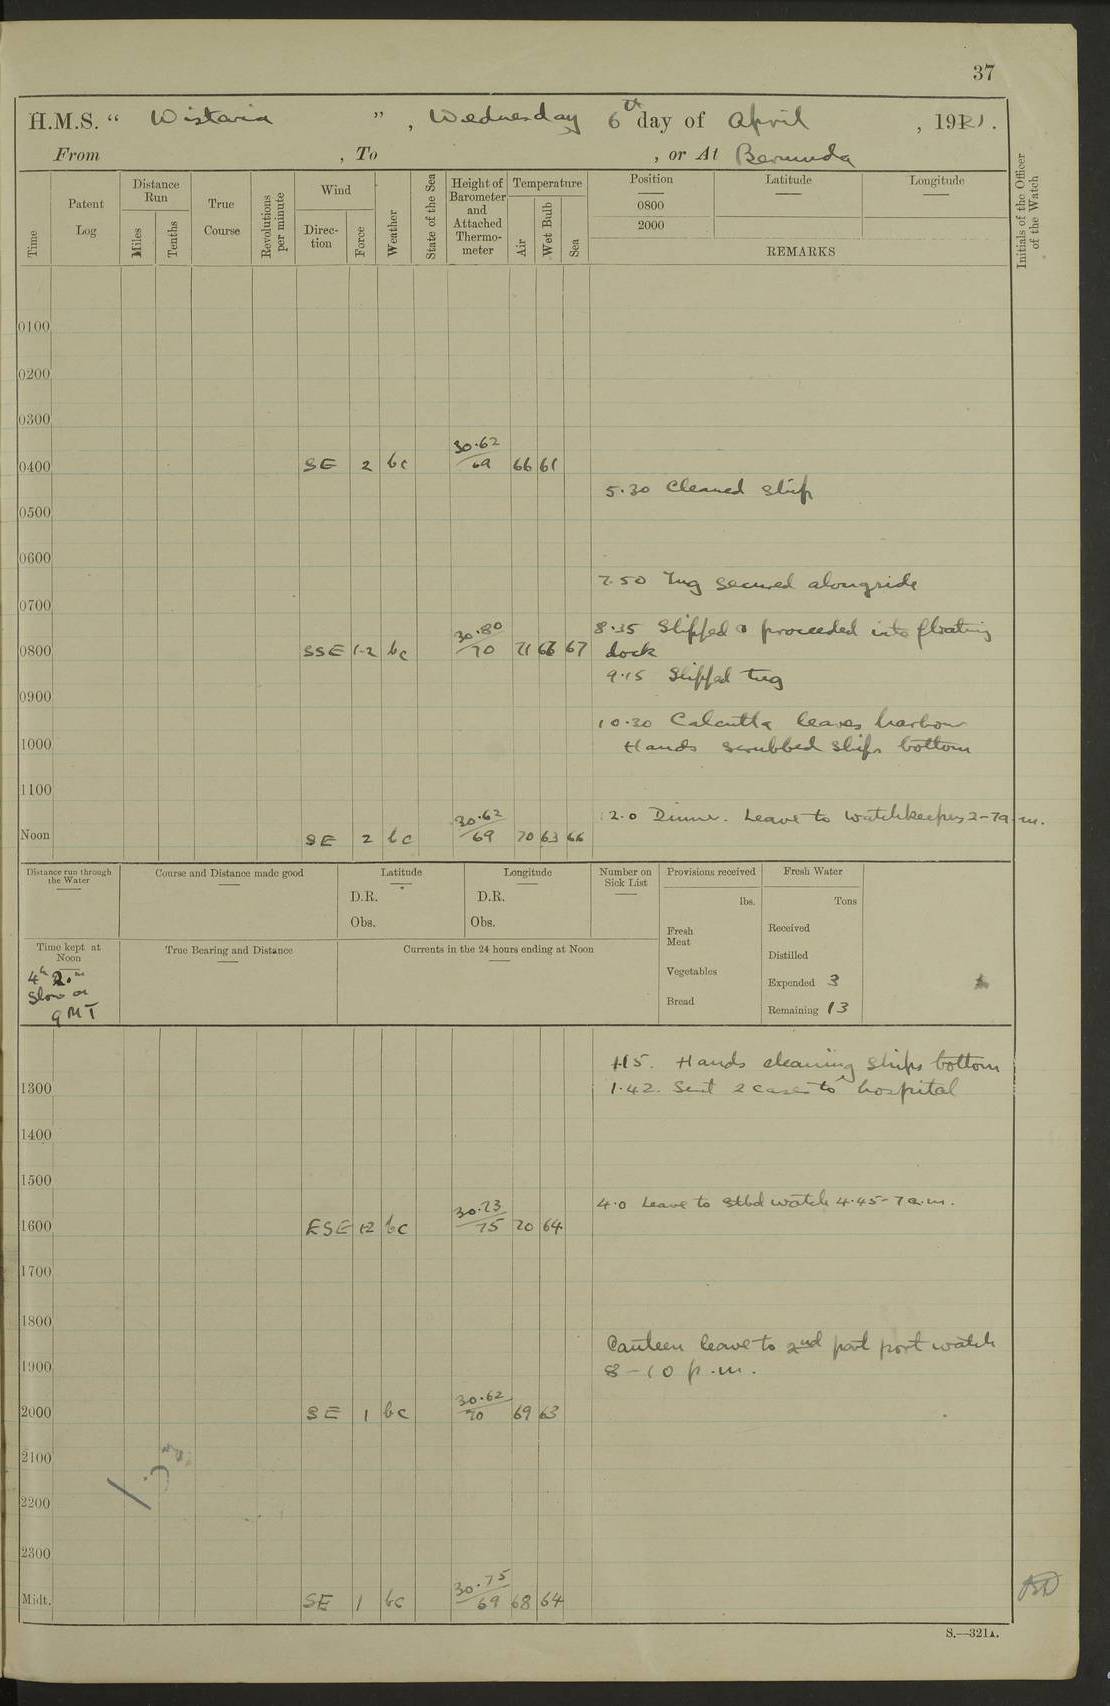 37
H.M.S. “ Wistaria ” , Wednesday 6th day of April , 1921.
From , To , or At Bermuda
Time
Patent Log
Distance Run
Miles
Tenths
True Course
Revolutions per minute
Wind
Direc-tion
Force
Weather
State of the Sea
Height of Barometer and Attached Thermo-meter
Temperature
Air
Wet Bulb
Sea
Position
0800
2000
Latitude
Longitude
REMARKS
Initials of the Officer of the Watch
0100
0200
0300
0400 SE 2 bc 30.62/69 66 61
5.30 Cleaned ship
0500
0600
7.50 Tug secured alongside
0700
8.35 Slipped & proceeded into floating
0800 SSE 1-2 bc 30.80/70 71 66 67 dock
9.15 Slipped tug
0900
10.30 Calcutta leaves harbour
1000 Hands scrubbed ships bottom
1100
12.0 Dinner. Leave to watchkeepers 2-7a.m.
Noon SE 2 bc 30.62/69 70 63 66
Distance run through the Water
Course and Distance made good
Latitude
D.R.
Obs.
Longitude
D.R.
Obs.
Number on Sick List
Provisions received
lbs.
Fresh Meat
Vegetables
Bread
Fresh Water
Tons
Received
Distilled
Expended 3
Remaining 13
Time kept at Noon
4h 20m
Slow on
GMT
True Bearing and Distance
Currents in the 24 hours ending at Noon
1.15. Hands cleaning ships bottom
1300 1.42. Sent 2 cases to hospital
1400
1500
4.0 Leave to Stbd watch 4.45-7a.m.
1600 ESE 1-2 bc 30.73/75 70 64
1700
1800
Canteen leave to 2nd part port watch
1900 8-10 p.m.
2000 SE 1 bc 30.62/70 69 63
2100
2200
2300
Midt. SE 1 bc 30.75/69 68 64
S.—321A.